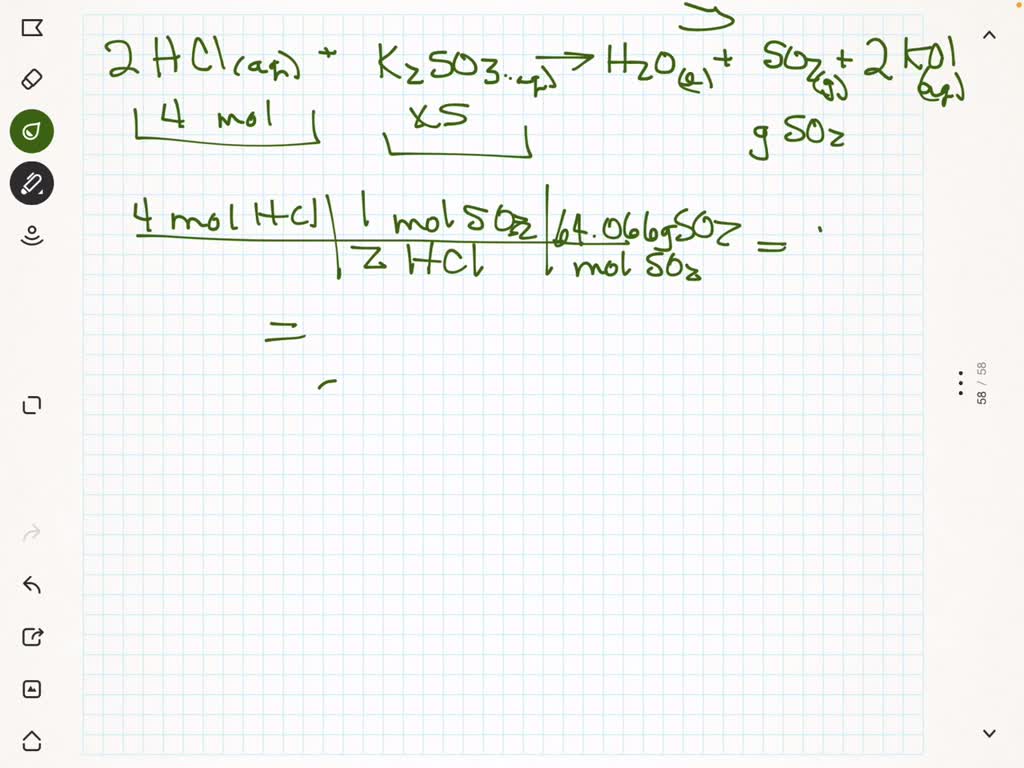 2 HCl(aq) + K2SO3(aq) → H2O(l) + SO2(g) + 2 KCl(aq)
4 mol XS g SO2
4 mol HCl | 1 mol SO2 | 64.066g SO2 =
2 HCl | mol SO2
=
58 / 58